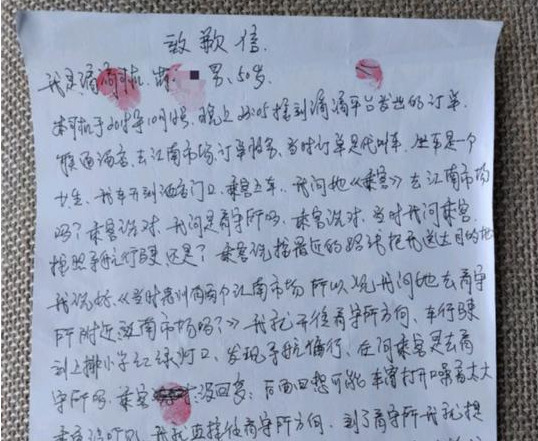 致歉信.
我是滴滴司机, 男、50岁.
本司机于2019年10月8号、晚上 接到滴滴平台发出的订单.
酒店、去江南市场、订单服务、当时订单是代叫车、坐车是一个
女生、我车开到酒店门口、乘客上车、我问她《乘客》去江南市场
吗？乘客说对、我问是看守所吗、乘客说对、当时我问乘客.
按照导航行驶还是？乘客说按最近的路线把我送去目的地
我说好、《当时 有两个江南市场 所以说我问她去看守
所附近江南市场吗？》我就开往看守所方向、车行驶
到上排小学红绿灯口、发现导航偏行、在问乘客是去看
守所吗、乘客 没回复、后面回想可能车窗打开噪音太大
乘客没听见、我就直接往看守所方向、到了看守所我就提